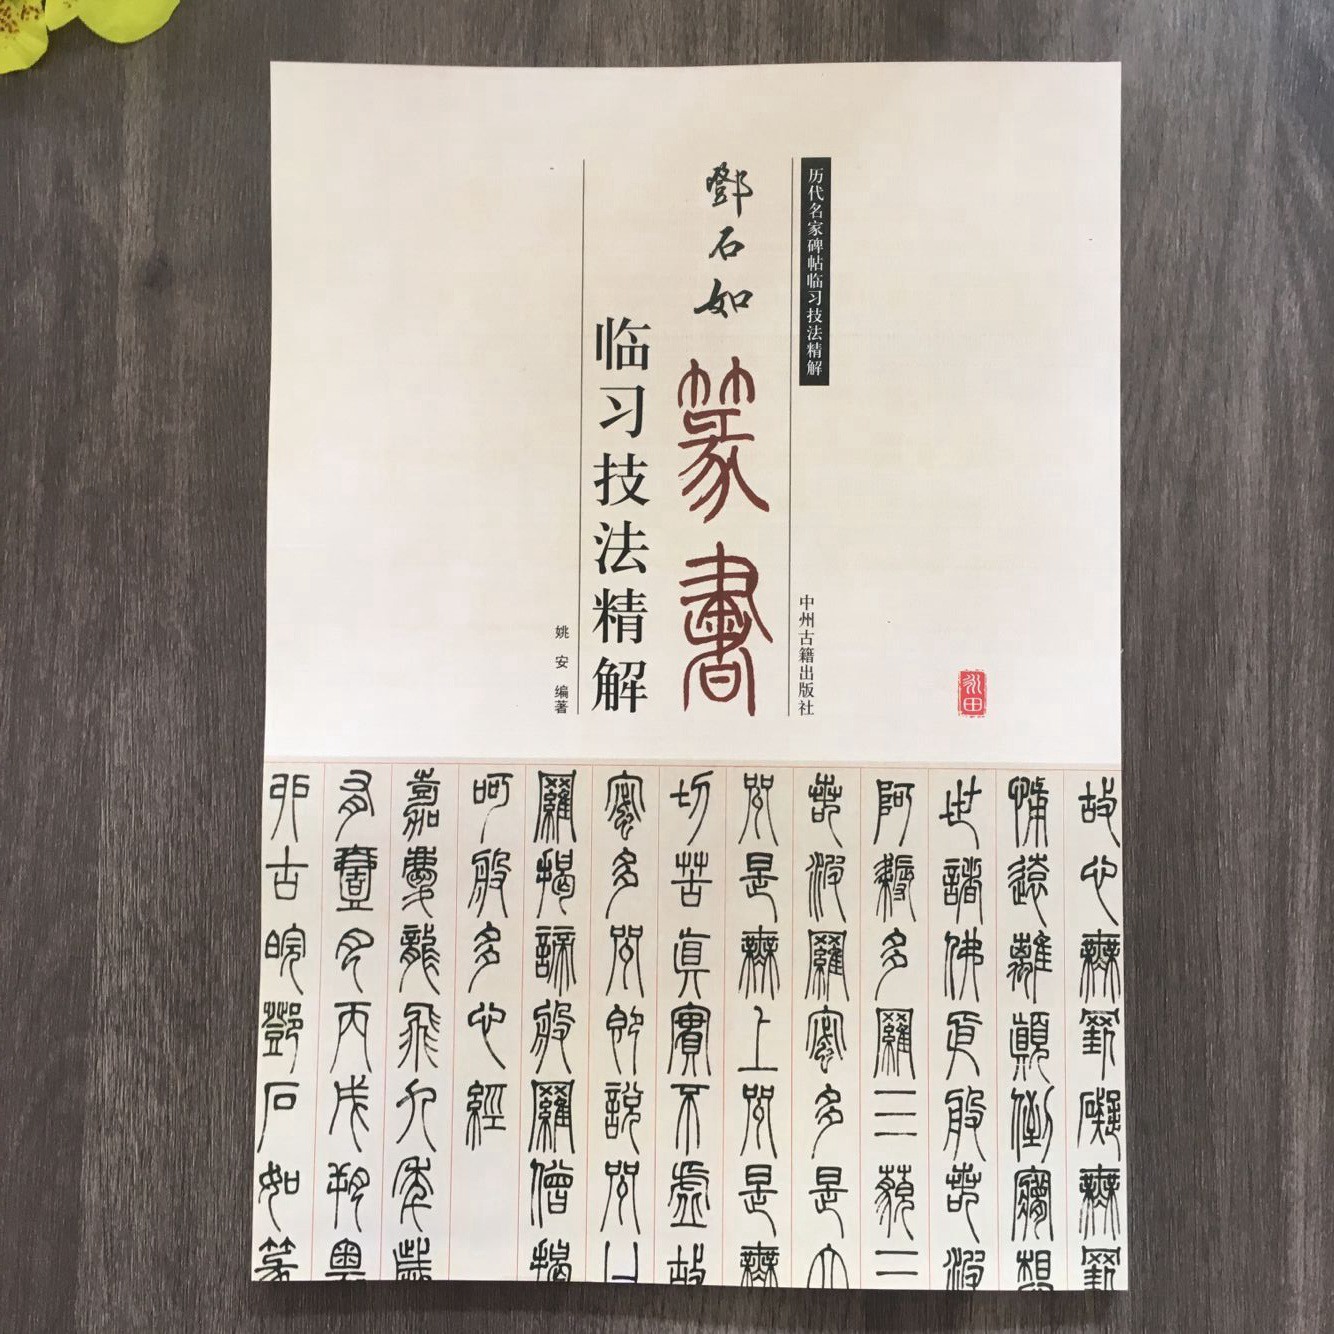 历代名家碑帖临习技法精解
鄧石如
篆書
临习技法精解
姚安 编著
中州古籍出版社
永田
故心無罣礙無罣
怖遠離顛倒夢想
世諸佛依般若波
阿耨多羅三藐三
若波羅蜜多是大
咒是無上咒是無
切苦真實不虛故
蜜多咒即說咒曰
羅揭諦般羅僧揭
呵般多心經
嘉慶龍飛九年歲
有壹月丙戌朔粵
邪古皖鄧石如篆